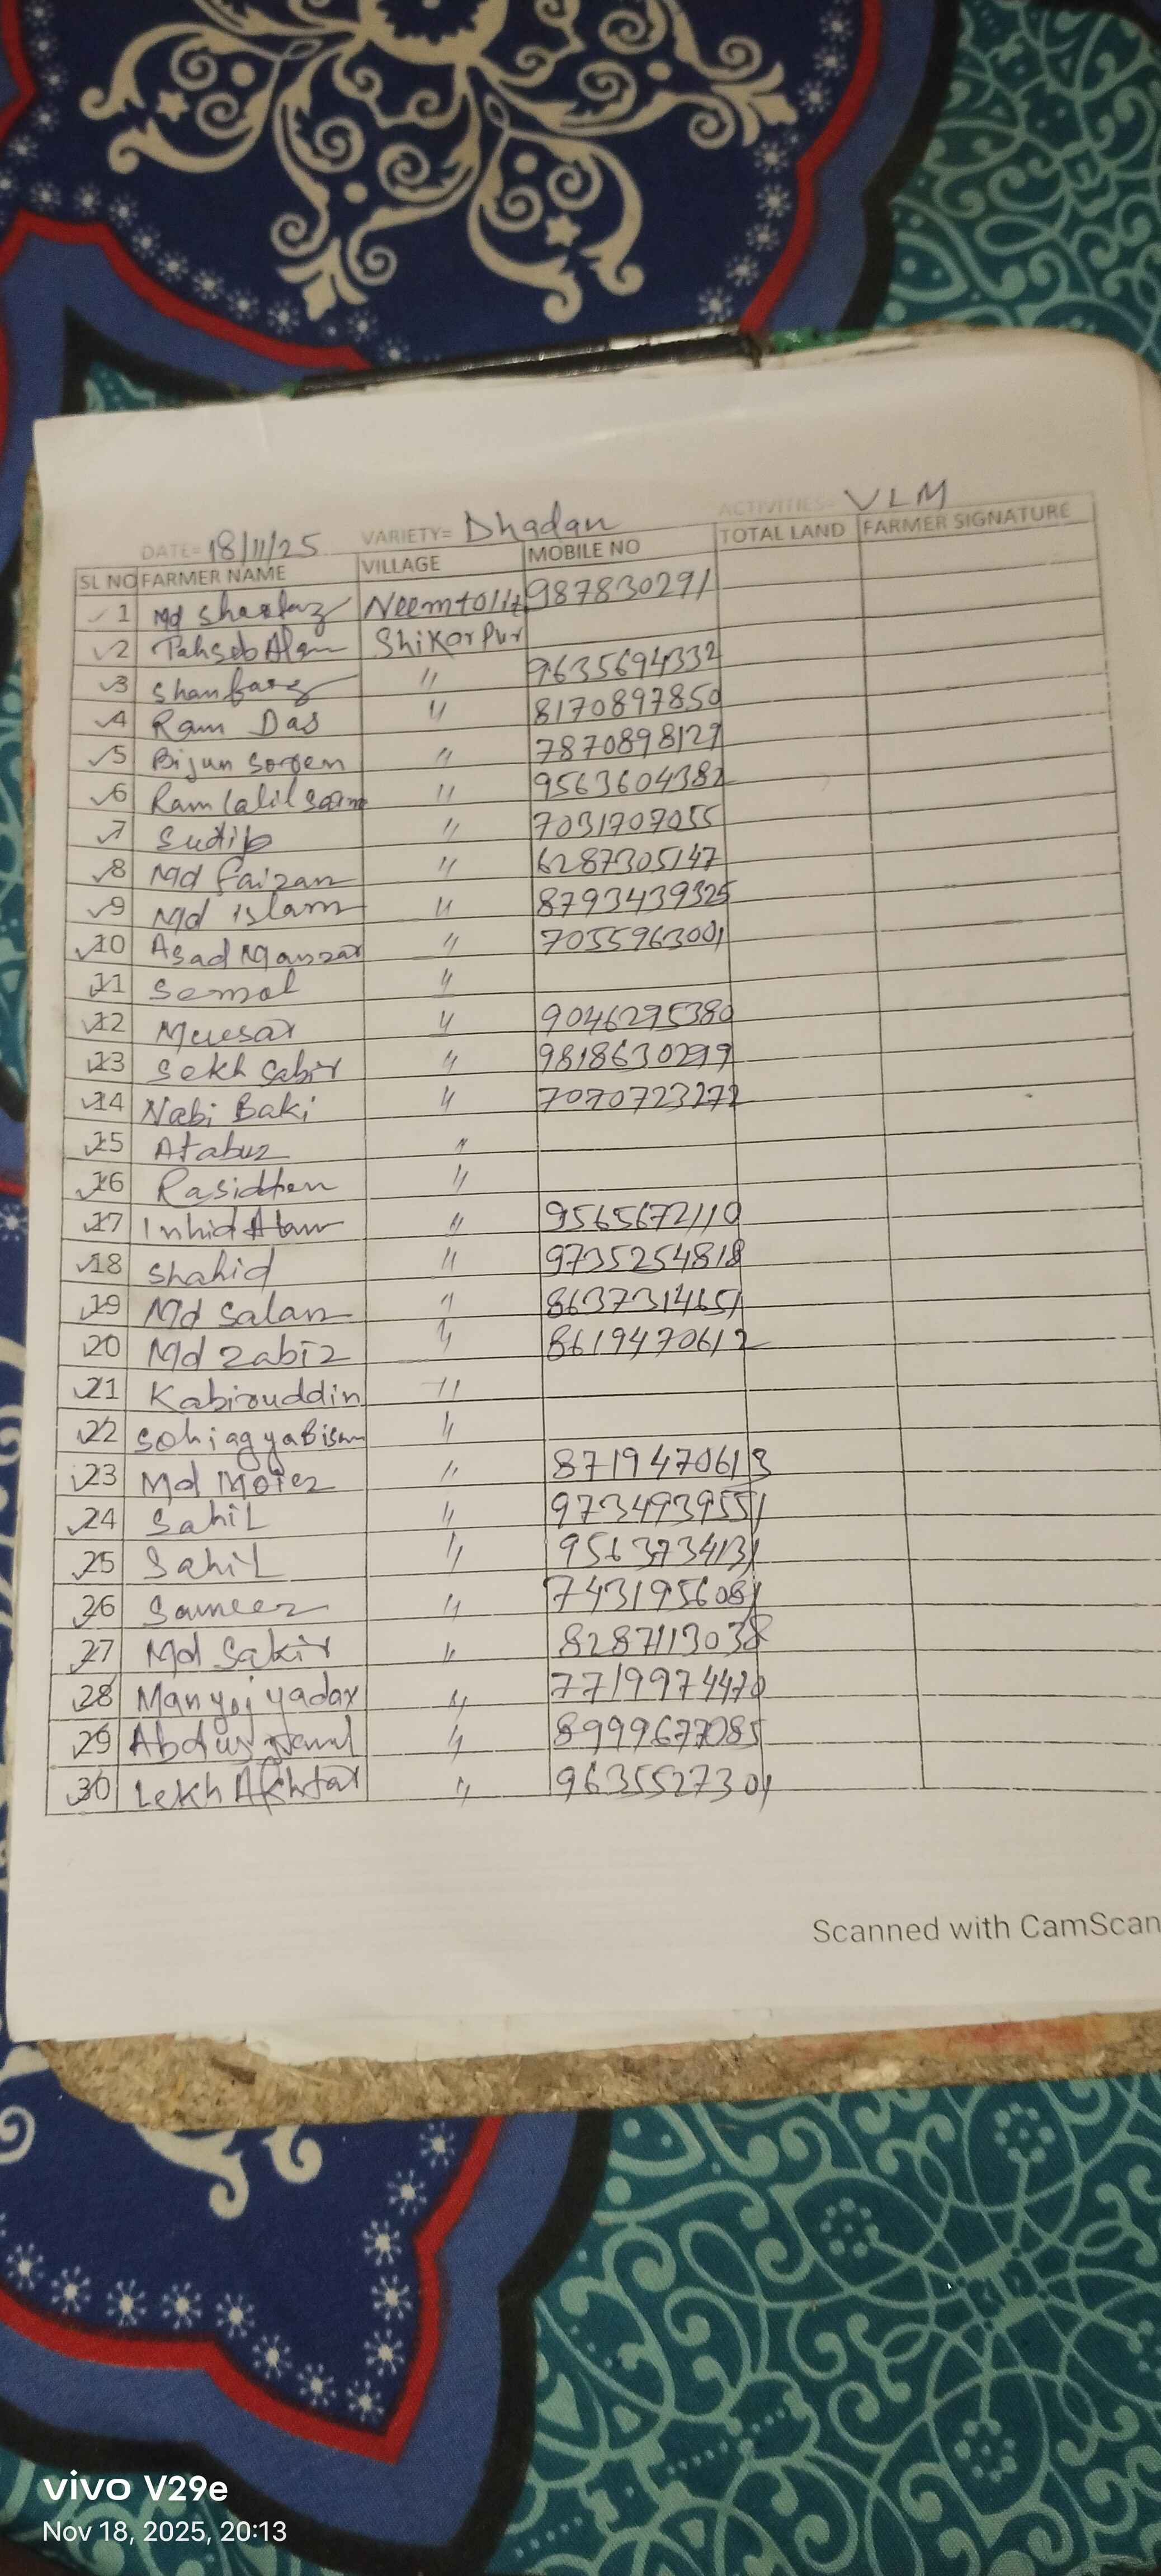 DATE= 18/11/25 VARIETY= Dhadan ACTIVITIES= VLM
SL NO FARMER NAME VILLAGE MOBILE NO TOTAL LAND FARMER SIGNATURE
1 Md Neemtolla 987830291
2 Tahseb Alam Shikarpur
3 Shanfarz " 9635694332
4 Ram Das " 8170897850
5 Bijun Sorem " 7870898129
6 Ram lalil " 9563604382
7 Sudip " 7031707055
8 Md faizan " 6287305147
9 Md islam " 8793439325
10 Asad Manzar " 7055963001
11 Semol "
12 Muesar " 9046295380
13 Sekh Sabir " 9818630299
14 Nabi Baki " 7070723272
15 Atabuz "
16 Rasidhen "
17 Inhid Alam " 9565672110
18 Shahid " 9735254818
19 Md Salam " 8637314651
20 Md Zabiz " 8619470612
21 Kabiruddin "
22 "
23 Md Moiez " 8719470613
24 Sahil " 9734939551
25 Sahil " 9563734131
26 Sameer " 7431956081
27 Md Sakir " 8287113038
28 Manyoj yadav " 7719974470
29 Abdus " 8999677085
30 Lekh Akhtar " 9635527301
Scanned with CamScan
vivo V29e
Nov 18, 2025, 20:13